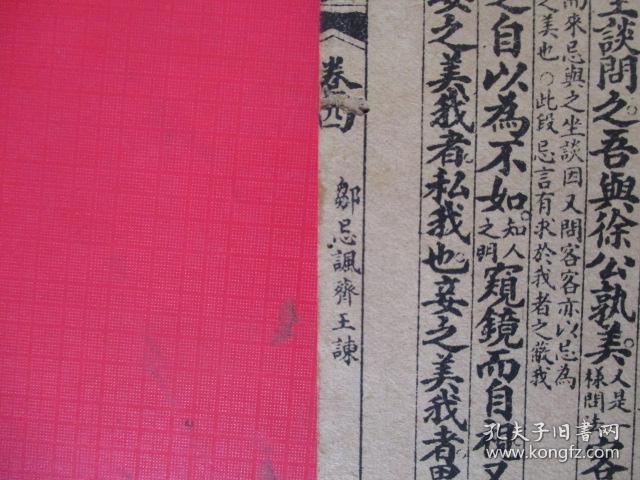 坐談問之吾與徐公孰美
又是
様問法
客
而來忌與之坐談因又問客客亦以忌為
之美也○此段忌言有求於我者之蔽我
之自以為不如
知人
之明
窺鏡而自視又
妻之美我者私我也妾之美我者畏
卷四 鄒忌諷齊王諫
孔夫子旧书网